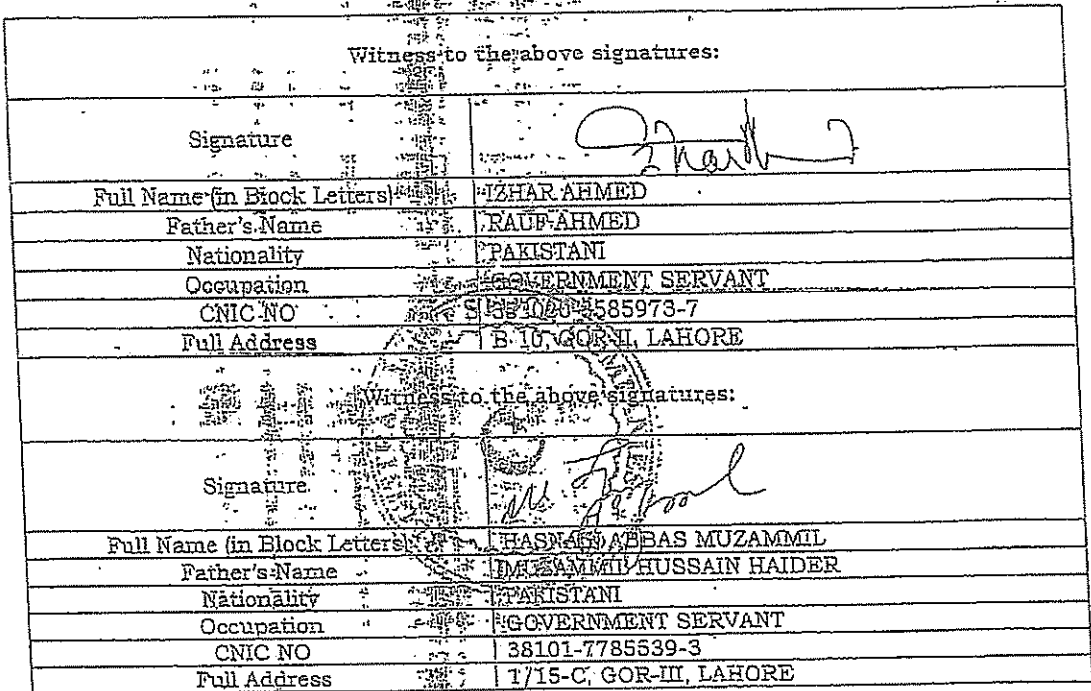 Witness to the above signatures:
Signature
Full Name (in Block Letters) IZHAR AHMED
Father's Name RAUF AHMED
Nationality PAKISTANI
Occupation GOVERNMENT SERVANT
CNIC NO
Full Address B-10, GOR-II, LAHORE
Witness to the above signatures:
Signature
Full Name (in Block Letters) ABBAS MUZAMMIL
Father's Name MUZAMMIL HUSSAIN HAIDER
Nationality PAKISTANI
Occupation GOVERNMENT SERVANT
CNIC NO 38101-7785539-3
Full Address 1/15-C, GOR-III, LAHORE